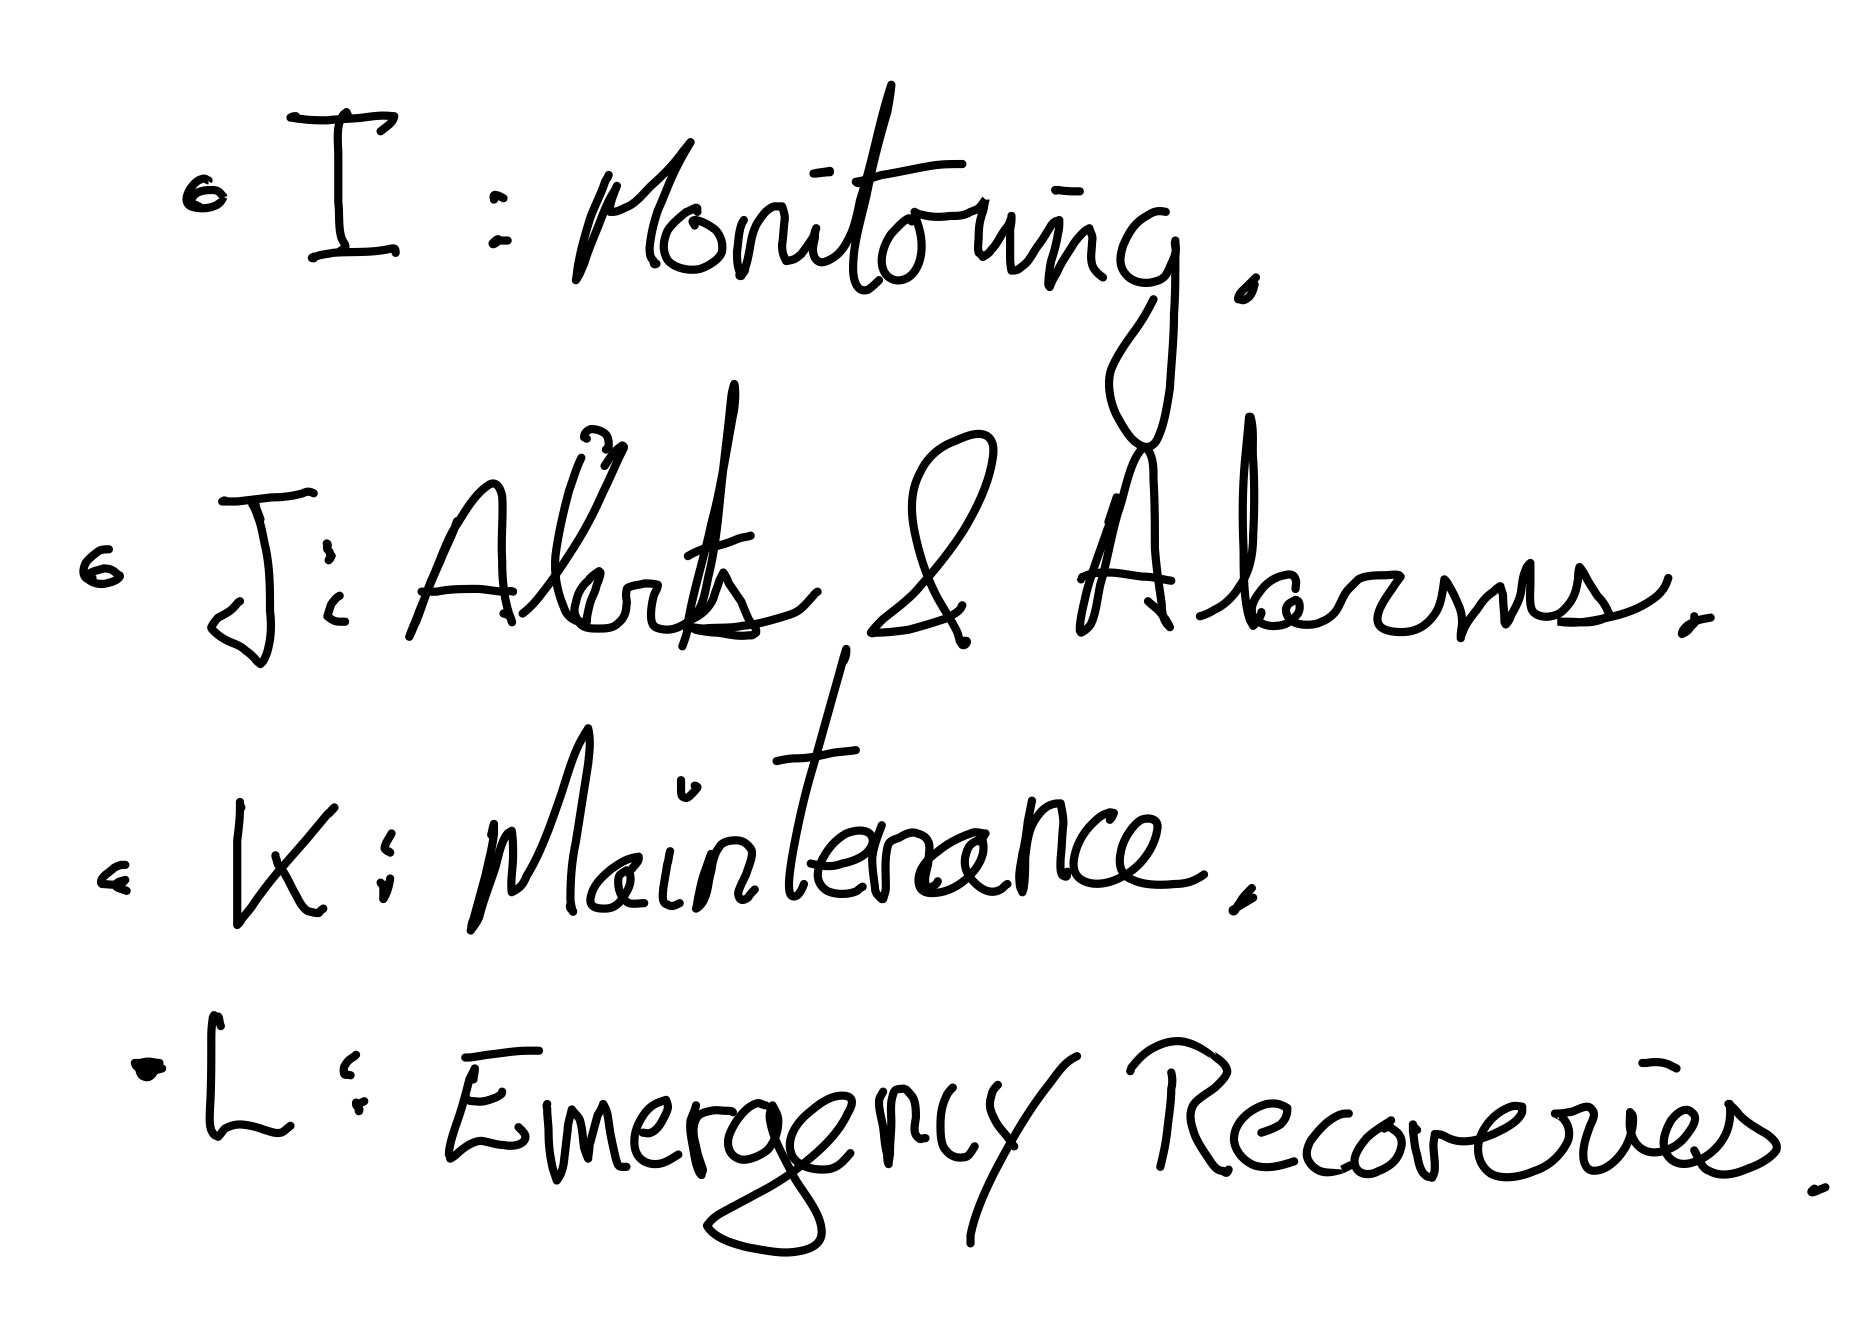 • I : Monitoring.
• J : Alerts & Alarms.
• K : Maintenance.
• L : Emergency Recoveries.